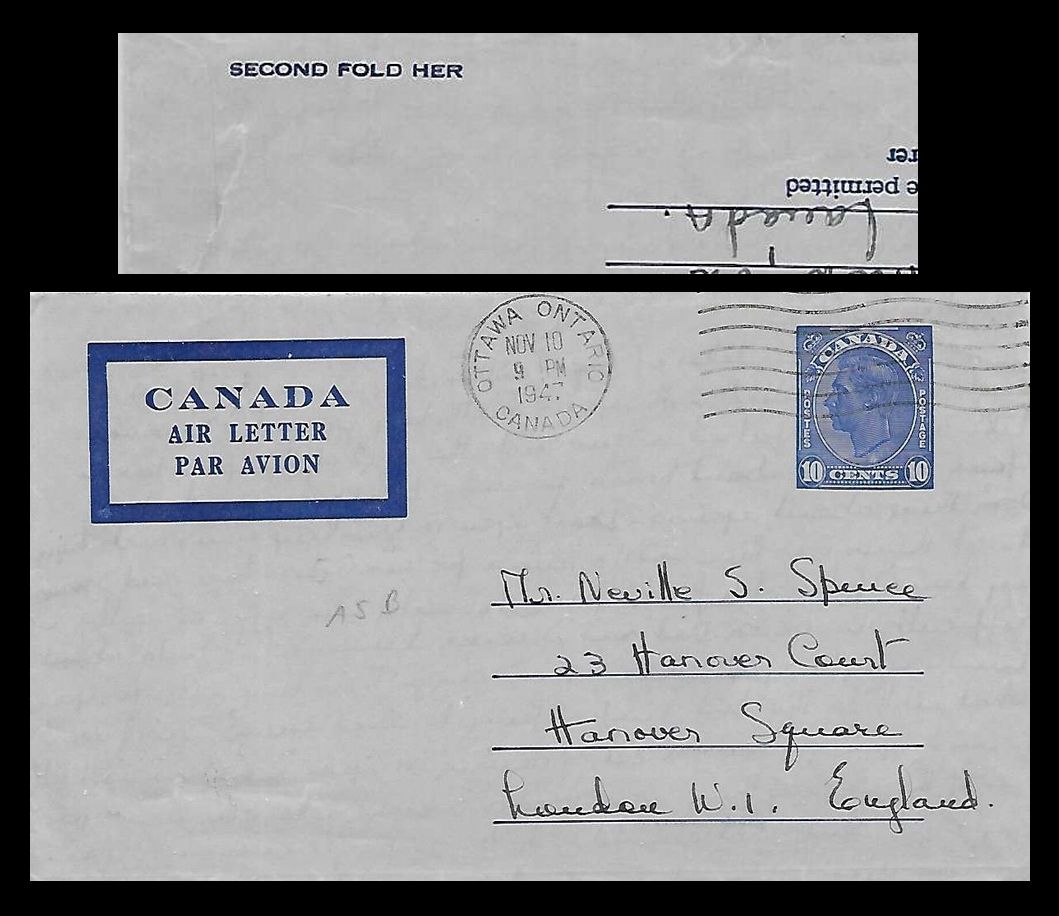 SECOND FOLD HER
rer
e permitted
Canada.
OTTAWA ONTARIO
NOV 10
9 PM
1947
CANADA
CANADA
POSTES
POSTAGE
10 CENTS 10
CANADA
AIR LETTER
PAR AVION
ASB
Mr. Neville S. Spence
23 Hanover Court
Hanover Square
London W.1. England.